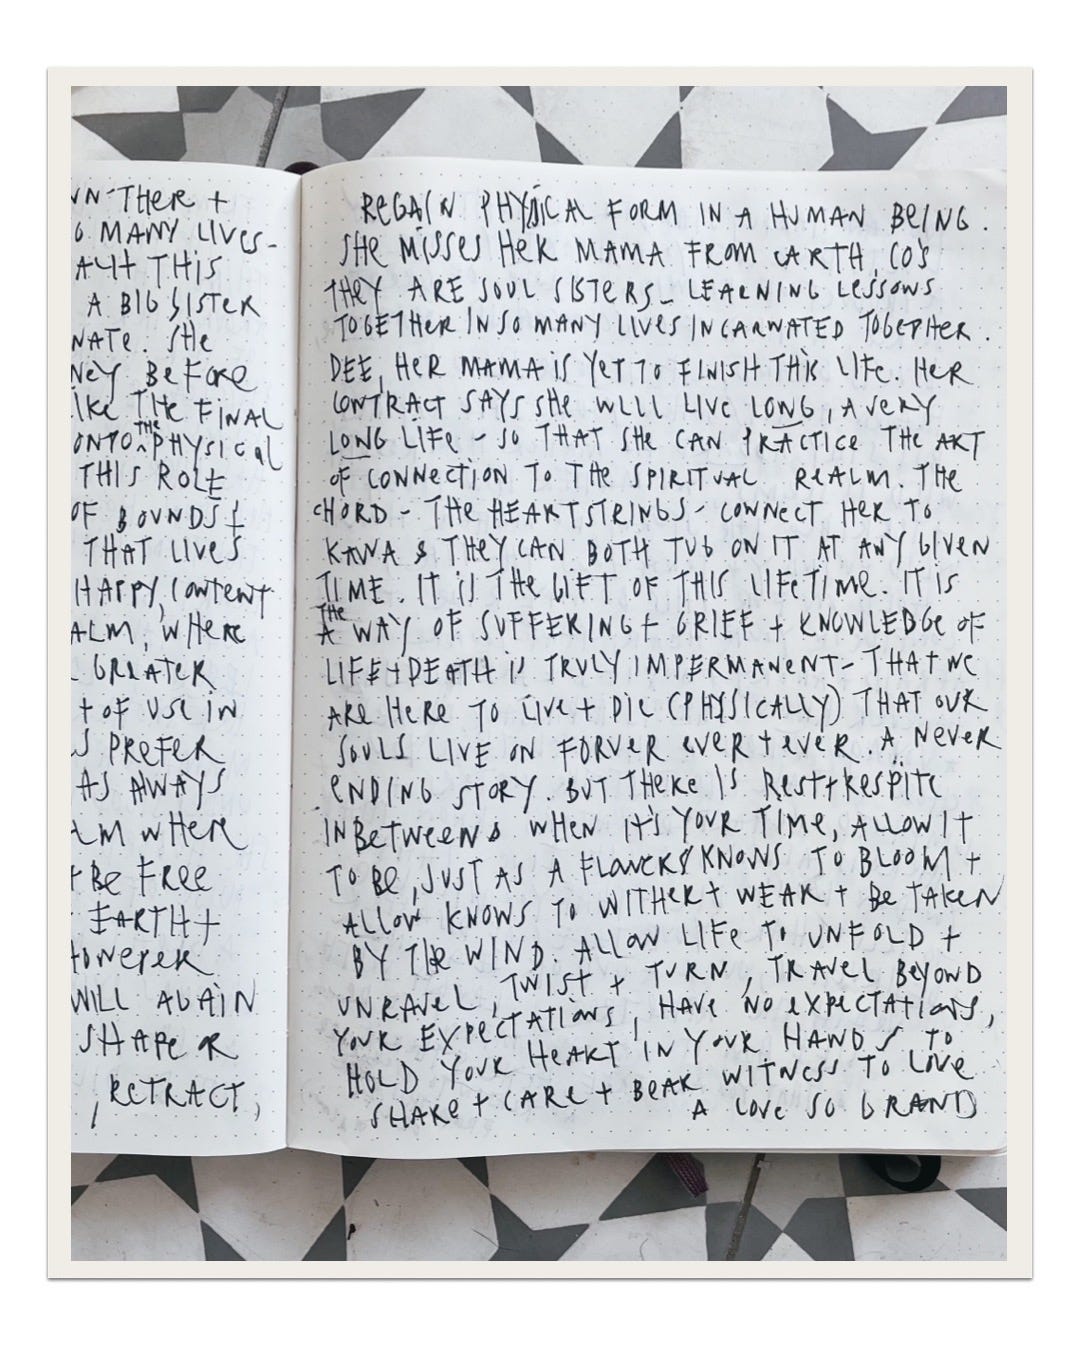 WN THER +
G MANY LIVES-
AUGHT THIS
A BIG SISTER
NATE. SHE
NEY BEFORE
IKE THE FINAL
ONTO THE PHYSICAL
THIS ROLE
OF BOUNDS +
THAT LIVES
HAPPY, CONTENT
ALM, WHERE
GREATER
+ OF USE IN
S PREFER
AS ALWAYS
LM WHERE
+ BE FREE
EARTH +
HOWEVER
WILL AGAIN
SHAPE OR
, RETRACT,
REGAIN PHYSICAL FORM IN A HUMAN BEING.
SHE MISSES HER MAMA FROM EARTH, COS
THEY ARE SOUL SISTERS_ LEARNING LESSONS
TOGETHER IN SO MANY LIVES INCARNATED TOGETHER.
DEE, HER MAMA IS YET TO FINISH THIS LIFE. HER
CONTRACT SAYS SHE WILL LIVE LONG, A VERY
LONG LIFE - SO THAT SHE CAN PRACTICE THE ART
OF CONNECTION TO THE SPIRITUAL REALM. THE
CHORD - THE HEARTSTRINGS - CONNECT HER TO
KAVA & THEY CAN BOTH TUG ON IT AT ANY GIVEN
TIME. IT IS THE GIFT OF THIS LIFETIME. IT IS
THE WAY OF SUFFERING + GRIEF + KNOWLEDGE OF
LIFE + DEATH IS TRULY IMPERMANENT - THAT WE
ARE HERE TO LIVE + DIE (PHYSICALLY) THAT OUR
SOULS LIVE ON FORVER EVER + EVER. A NEVER
ENDING STORY. BUT THERE IS REST + RESPITE
INBETWEEN & WHEN IT'S YOUR TIME, ALLOW IT
TO BE, JUST AS A FLOWER KNOWS TO BLOOM +
ALLOW KNOWS TO WITHER + WEAR + BE TAKEN
BY THE WIND. ALLOW LIFE TO UNFOLD +
UNRAVEL, TWIST + TURN, TRAVEL BEYOND
YOUR EXPECTATIONS, HAVE NO EXPECTATIONS,
HOLD YOUR HEART IN YOUR HANDS TO
SHARE + CARE + BEAR WITNESS TO LOVE
A LOVE SO GRAND